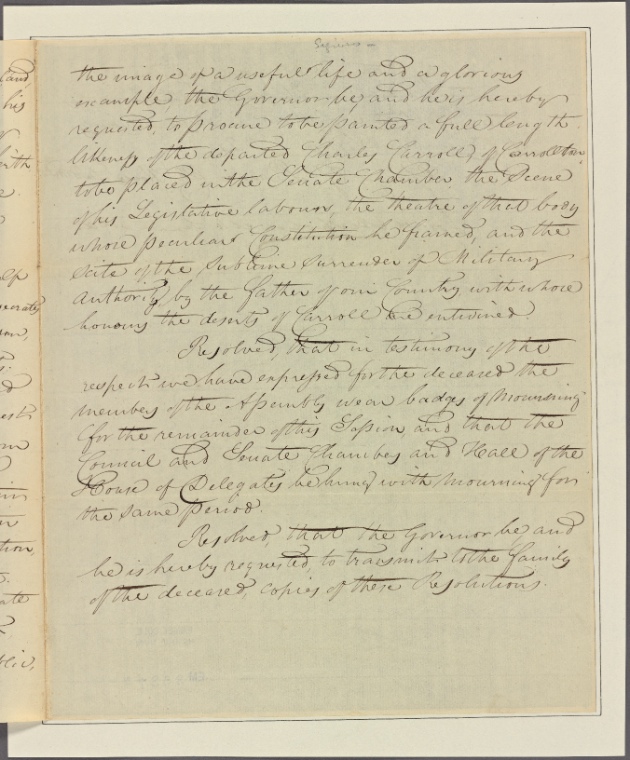 the image of a useful life and a glorious
example, the Governor be, and he is hereby
requested, to procure to be painted a full length
likeness of the departed Charles Carroll, of Carrollton
to be placed in the Senate Chamber the Scene
of his Legislative labours, the theatre of that body
whose peculiar Constitution he framed, and the
scite of the sublime surrender of Military
Authority by the Father of our Country with whose
honours the deserts of Carroll are entwined.
Resolved, that in testimony of the
respect we have expressed for the deceased the
members of the Assembly wear badges of mourning
for the remainder of this Session, and that the
Council and Senate Chambers and Hall of the
House of Delegates be hung with mourning for
the same period.
Resolved, that the Governor be, and
he is hereby requested, to transmit to the family
of the deceased, copies of these Resolutions.